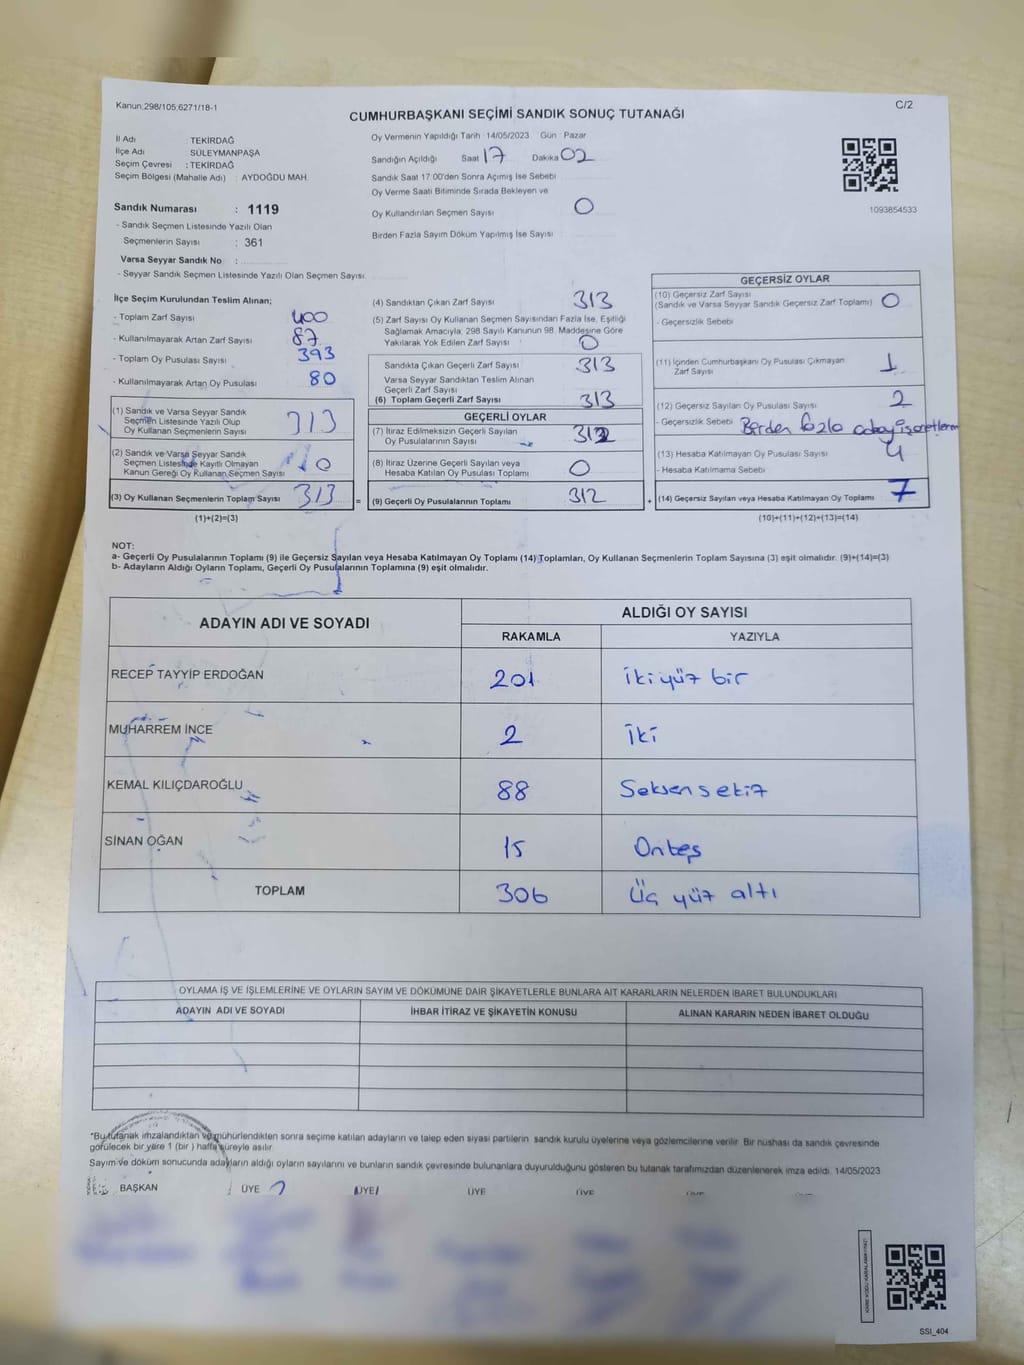 Kanun,298/105,6271/18-1
C/2
CUMHURBAŞKANI SEÇİMİ SANDIK SONUÇ TUTANAĞI
İl Adı : TEKİRDAĞ
İlçe Adı SÜLEYMANPAŞA
Seçim Çevresi : TEKİRDAĞ
Seçim Bölgesi (Mahalle Adı) : AYDOĞDU MAH.
Sandık Numarası : 1119
- Sandık Seçmen Listesinde Yazılı Olan
Seçmenlerin Sayısı : 361
Varsa Seyyar Sandık No :
- Seyyar Sandık Seçmen Listesinde Yazılı Olan Seçmen Sayısı
Oy Vermenin Yapıldığı Tarih : 14/05/2023 Gün : Pazar
Sandığın Açıldığı Saat 17 Dakika 02
Sandık Saat 17:00'den Sonra Açımış İse Sebebi
Oy Verme Saati Bitiminde Sırada Bekleyen ve
Oy Kullandırılan Seçmen Sayısı 0
Birden Fazla Sayım Döküm Yapılmış İse Sayısı
1093854533
İlçe Seçim Kurulundan Teslim Alınan;
- Toplam Zarf Sayısı 400
- Kullanılmayarak Artan Zarf Sayısı 87
- Toplam Oy Pusulası Sayısı 393
- Kullanılmayarak Artan Oy Pusulası 80
(1) Sandık ve Varsa Seyyar Sandık
Seçmen Listesinde Yazılı Olup
Oy Kullanan Seçmenlerin Sayısı 313
(2) Sandık ve Varsa Seyyar Sandık
Seçmen Listesinde Kayıtlı Olmayan
Kanun Gereği Oy Kullanan Seçmen Sayısı 0
(3) Oy Kullanan Seçmenlerin Toplam Sayısı 313 =
(1)+(2)=(3)
(4) Sandıktan Çıkan Zarf Sayısı 313
(5) Zarf Sayısı Oy Kullanan Seçmen Sayısından Fazla İse, Eşitliği
Sağlamak Amacıyla; 298 Sayılı Kanunun 98. Maddesine Göre
Yakılarak Yok Edilen Zarf Sayısı : 0
Sandıkta Çıkan Geçerli Zarf Sayısı 313
Varsa Seyyar Sandıktan Teslim Alınan
Geçerli Zarf Sayısı
(6) Toplam Geçerli Zarf Sayısı 313
GEÇERLİ OYLAR
(7) İtiraz Edilmeksizin Geçerli Sayılan
Oy Pusulalarının Sayısı 312
(8) İtiraz Üzerine Geçerli Sayılan veya
Hesaba Katılan Oy Pusulası Toplamı 0
(9) Geçerli Oy Pusulalarının Toplamı 312 +
GEÇERSİZ OYLAR
(10) Geçersiz Zarf Sayısı
(Sandık ve Varsa Seyyar Sandık Geçersiz Zarf Toplamı) 0
- Geçersizlik Sebebi
(11) İçinden Cumhurbaşkanı Oy Pusulası Çıkmayan
Zarf Sayısı 1
(12) Geçersiz Sayılan Oy Pusulası Sayısı 2
- Geçersizlik Sebebi Birden fazla aday işaretleme
(13) Hesaba Katılmayan Oy Pusulası Sayısı 4
- Hesaba Katılmama Sebebi
(14) Geçersiz Sayılan veya Hesaba Katılmayan Oy Toplamı 7
(10)+(11)+(12)+(13)=(14)
NOT:
a- Geçerli Oy Pusulalarının Toplamı (9) ile Geçersiz Sayılan veya Hesaba Katılmayan Oy Toplamı (14) Toplamları, Oy Kullanan Seçmenlerin Toplam Sayısına (3) eşit olmalıdır. (9)+(14)=(3)
b- Adayların Aldığı Oyların Toplamı, Geçerli Oy Pusulalarının Toplamına (9) eşit olmalıdır.
ADAYIN ADI VE SOYADI ALDIĞI OY SAYISI
RAKAMLA YAZIYLA
RECEP TAYYİP ERDOĞAN 201 İki yüz bir
MUHARREM İNCE 2 İki
KEMAL KILIÇDAROĞLU 88 Seksen sekiz
SİNAN OĞAN 15 Onbeş
TOPLAM 306 Üç yüz altı
OYLAMA İŞ VE İŞLEMLERİNE VE OYLARIN SAYIM VE DÖKÜMÜNE DAİR ŞİKAYETLERLE BUNLARA AİT KARARLARIN NELERDEN İBARET BULUNDUKLARI
ADAYIN ADI VE SOYADI İHBAR İTİRAZ VE ŞİKAYETİN KONUSU ALINAN KARARIN NEDEN İBARET OLDUĞU
*Bu tutanak imzalandıktan ve mühürlendikten sonra seçime katılan adayların ve talep eden siyasi partilerin sandık kurulu üyelerine veya gözlemcilerine verilir. Bir nüshası da sandık çevresinde
görülecek bir yere 1 (bir) hafta süreyle asılır.
Sayım ve döküm sonucunda adayların aldığı oyların sayılarını ve bunların sandık çevresinde bulunanlara duyurulduğunu gösteren bu tutanak tarafımızdan düzenlenerek imza edildi. 14/05/2023
BAŞKAN ÜYE ÜYE ÜYE ÜYE
SSI_404